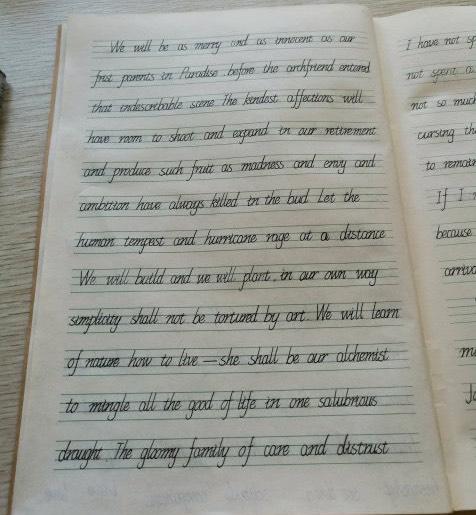 We will be as merry and as innocent as our
frist parents in Paradise before the archfriend entered
that indescribable scene The kindest affections will
have room to shoot and expand in our retirement
and produce such fruit as madness and envy and
ambition have always killed in the bud Let the
human tempest and hurricane rage at a distance
We will build and we will plant, in our own way
simplicity shall not be tortured by art. We will learn
of nature how to live — she shall be our alchemist
to mingle all the good of life in one salubrious
draught. The gloomy family of care and distrust
I have not sp
not spent a
not so much
cursing th
to remain
If I
because
arriva